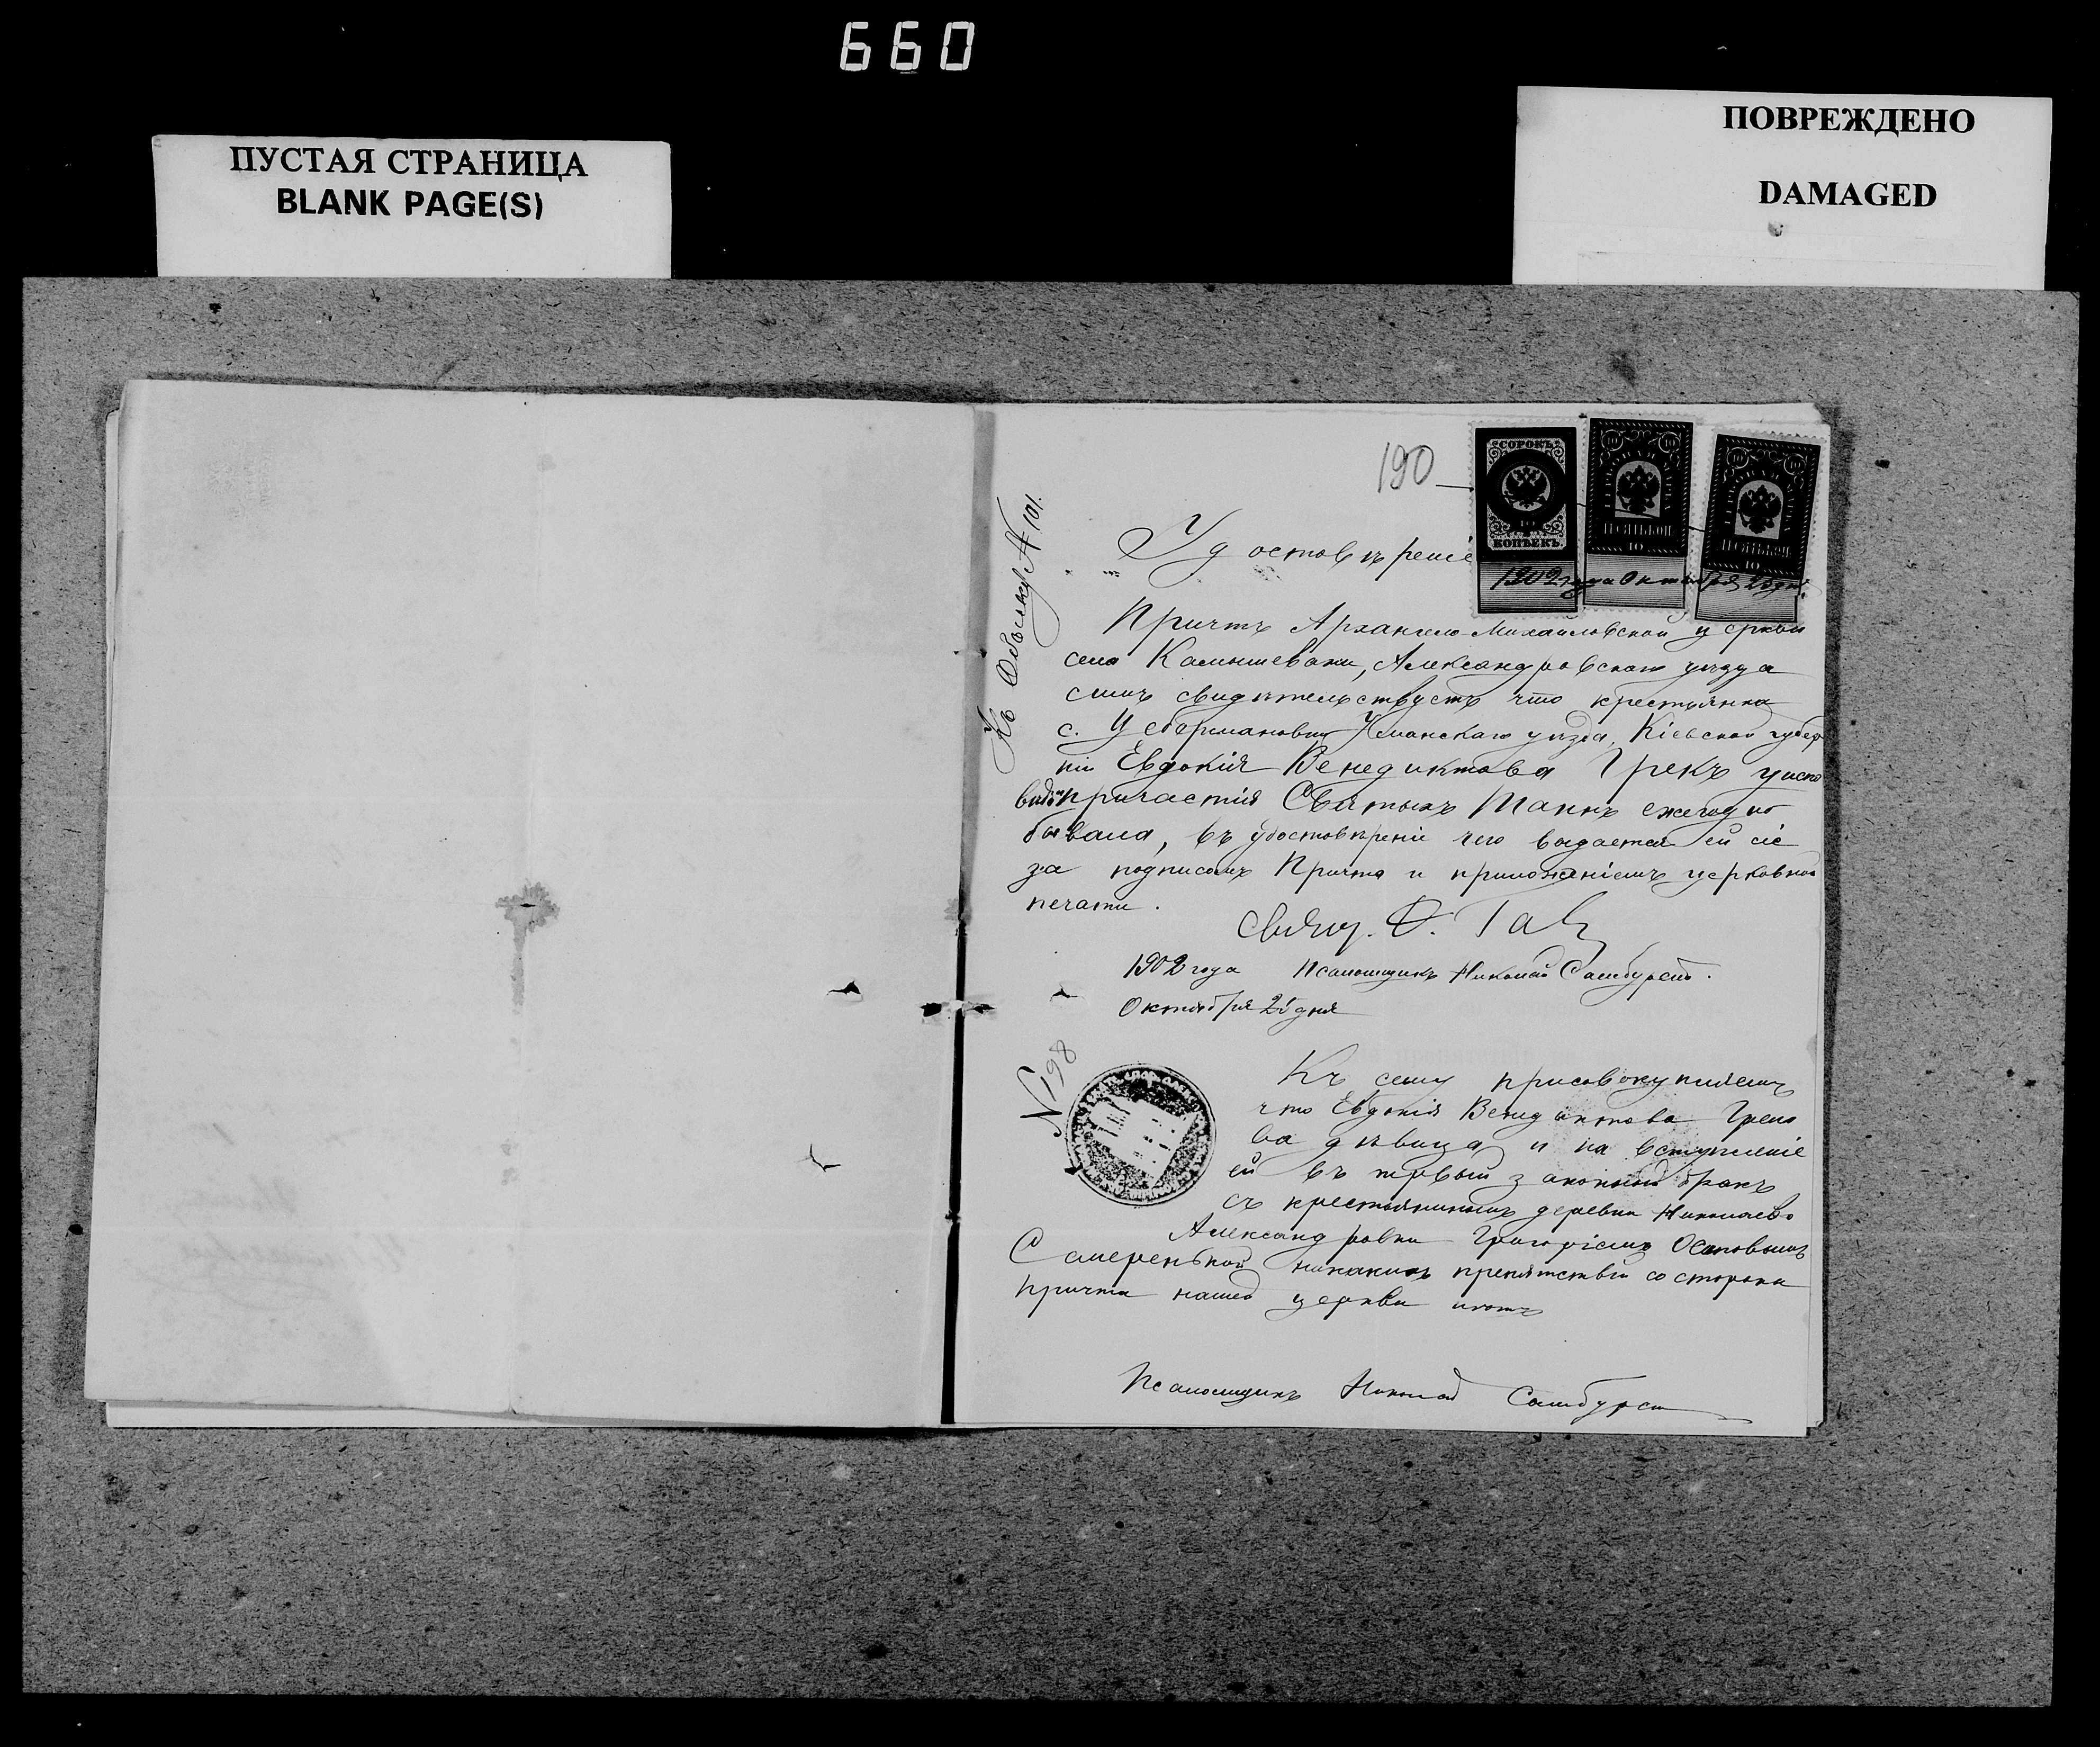 660
ПУСТАЯ СТРАНИЦА
BLANK PAGE(S)
ПОВРЕЖДЕНО
DAMAGED
190
СОРОКЪ
40
КОПѢЕКЪ
ГЕРБОВАЯ МАРКА
10 КОП.
10
ГЕРБОВАЯ МАРКА
10 КОП.
10
1902 года Октября 25 дня.
Къ Обыску № 101.
Удостовѣреніе
Причтъ Архангело-Михайловской церкви
села Камышевахи, Александровскаго уѣзда
симъ свидѣтельствуетъ что крестьянка
с. Уманскаго уѣзда, Кіевской губер
ніи Евдокія Венедиктова Грекъ у испо
вѣди и причастія Святыхъ Таинъ ежегодно
бывала, въ удостовѣреніи чего выдается ей сіе
за подписомъ Причта и приложеніемъ церковной
печати.
Свящ. Ѳ.
1902 года Псаломщикъ Николай Самбурскій.
Октября 25 дня
№ 198
Къ сему присовокупляемъ
что Евдокія Венедиктова Греко
ва дѣвица и на вступленіе
ей въ первый законный бракъ
съ крестьяниномъ деревни Николаево
Александровки Григоріемъ Осиповымъ
никакихъ препятствій со стороны
причта нашей церкви нѣтъ
Псаломщикъ Николай Самбурскій